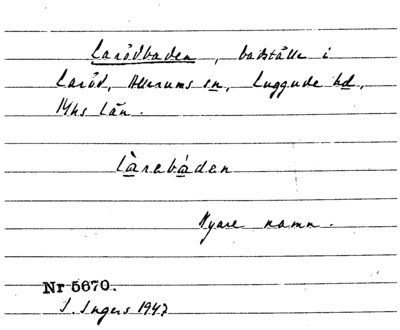 Larödbaden, badställe i
Laröd, Allerums sn, Luggude hd,
Mhs län.
làrabádan
Nyare namn.
Nr 5670.
I. Ingers 1947